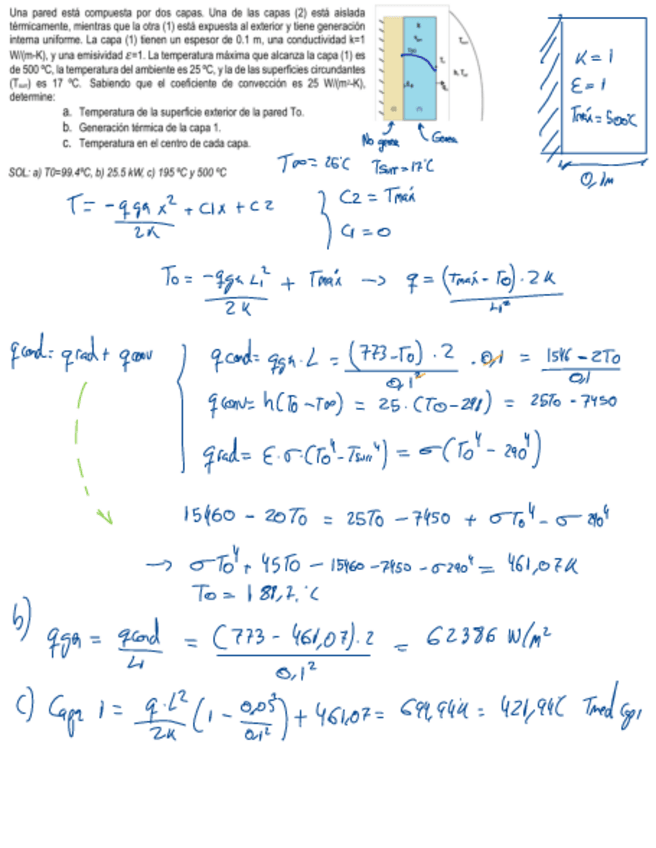 Una pared está compuesta por dos capas. Una de las capas (2) está aislada
térmicamente, mientras que la otra (1) está expuesta al exterior y tiene generación
interna uniforme. La capa (1) tienen un espesor de 0.1 m, una conductividad k=1
W/(m-K), y una emisividad ε=1. La temperatura máxima que alcanza la capa (1) es
de 500 ºC, la temperatura del ambiente es 25 ºC, y la de las superficies circundantes
(Tsurr) es 17 ºC. Sabiendo que el coeficiente de convección es 25 W/(m²-K),
determine:
a. Temperatura de la superficie exterior de la pared To.
b. Generación térmica de la capa 1.
c. Temperatura en el centro de cada capa.
SOL: a) T0=99.4ºC, b) 25.5 kW, c) 195 ºC y 500 ºC
No genera
Genera
K = 1
ε = 1
Tmáx = 500ºC
0,1m
T∞ = 25ºC Tsurr = 17ºC
T = -qgn x² / 2K + C1x + C2
C2 = Tmáx
C1 = 0
To = -qgn L1² / 2K + Tmáx → q = (Tmáx - To) · 2K / L1²
qcond = qrad + qconv
qcond = qgn · L = (773 - To) · 2 / 0,1² · 0,1 = 1546 - 2To / 0,1
qconv = h(To - T∞) = 25 · (To - 298) = 25To - 7450
qrad = ε · σ · (To⁴ - Tsurr⁴) = σ(To⁴ - 290⁴)
15460 - 20To = 25To - 7450 + σTo⁴ - σ290⁴
→ σTo⁴ + 45To - 15460 - 7450 - σ290⁴ = 461,07K
To = 187,7ºC
b) qgn = qcond / L1 = (773 - 461,07) · 2 / 0,1² = 62386 W/m²
c) Capa 1 = q · L² / 2K (1 - 0,05² / 0,1²) + 461,07 = 694,94K = 421,94C Tmed cap1